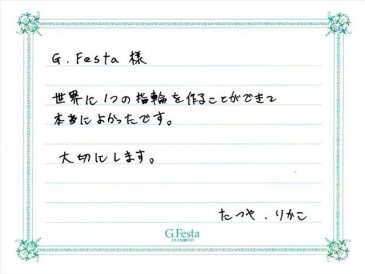 G.Festa 様
世界に1つの指輪を作ることができて
本当によかったです。
大切にします。
たつや、りかこ
G.Festa